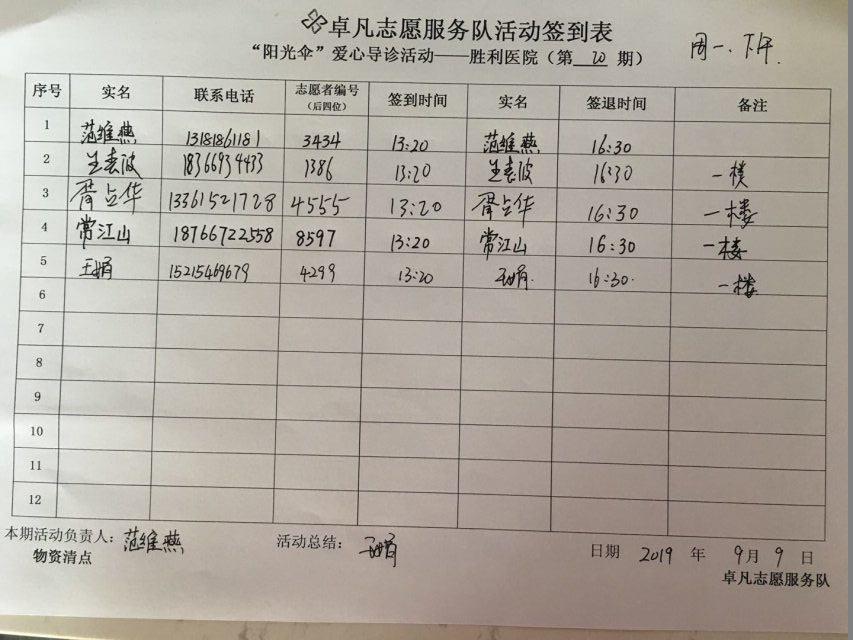 卓凡志愿服务队活动签到表
“阳光伞”爱心导诊活动——胜利医院（第 20 期）
周一.下午.
序号 实名 联系电话 志愿者编号（后四位） 签到时间 实名 签退时间 备注
1 范维燕 13181861181 3434 13:20 范维燕 16:30
2 18366934433 1386 13:20 16:30 一楼
3 胥占华 13361521728 4555 13:20 胥占华 16:30 一楼
4 常江山 18766722558 8597 13:20 常江山 16:30 一楼
5 王娟 15215469679 4299 13:20 王娟 16:30 一楼
6
7
8
9
10
11
12
本期活动负责人：范维燕 活动总结：王娟 日期 2019 年 9月 9 日
物资清点
卓凡志愿服务队